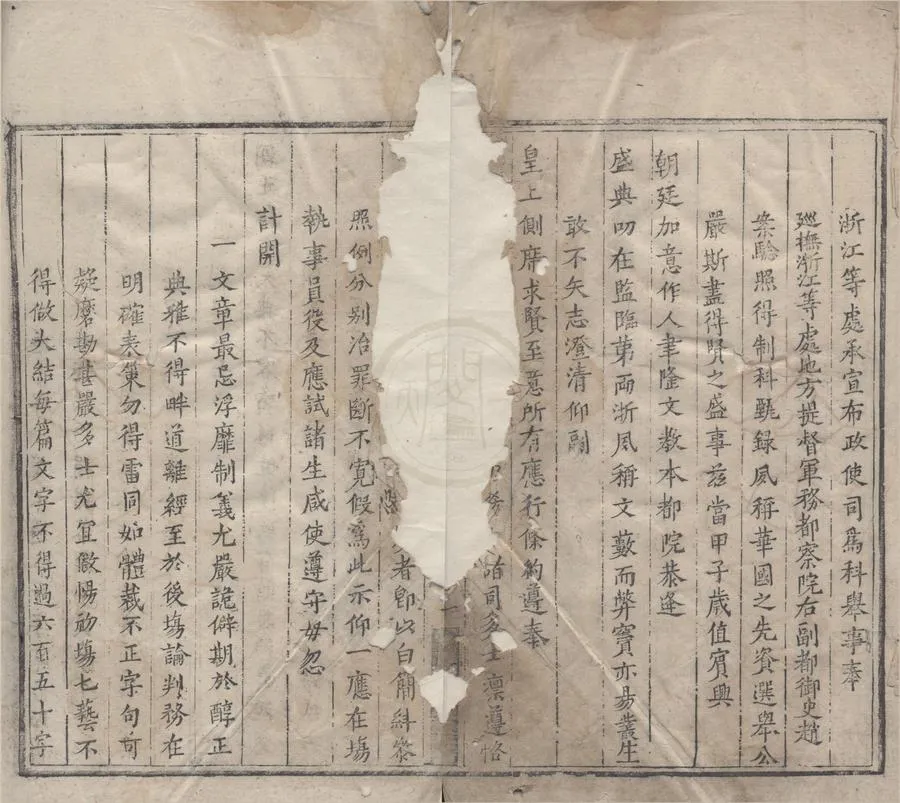 浙江等處承宣布政使司爲科舉事奉
廵撫浙江等處地方提督軍務都察院右副都御史趙
案驗照得制科甄録夙稱華國之先資選舉公
嚴斯盡得賢之盛事兹當甲子歲值賓興
朝廷加意作人聿隆文教本都院恭逢
盛典叨在監臨第兩浙夙稱文藪而弊竇亦易叢生
敢不矢志澄清仰副
皇上側席求賢至意所有應行條約遵奉
諸司多士凛遵恪
者卽以白簡糾叅
照例分别治罪斷不寛假爲此示仰一應在塲
執事員役及應試諸生咸使遵守毋忽
計開
一文章最忌浮靡制義尤嚴詭僻期於醇正
典雅不得畔道離經至於後塲論判務在
明確表策勿得雷同如體裁不正字句可
疑磨勘甚嚴多士尤宜儆惕初塲七藝不
得做大結每篇文字不得過六百五十字